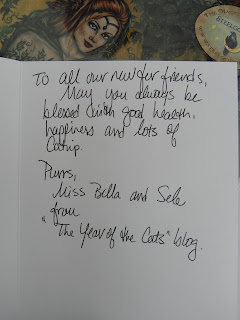 To all our new fur friends,
May you always be
blessed with good health,
happiness and lots of
Catnip.
Purrs,
Miss Bella and Sele
from
"The Year of the Cats" blog.